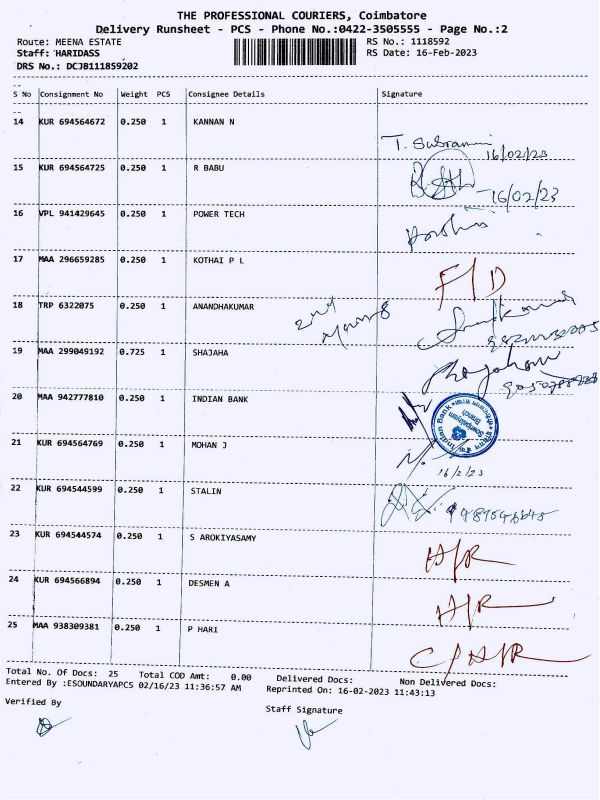 THE PROFESSIONAL COURIERS, Coimbatore
Delivery Runsheet - PCS - Phone No.:0422-3505555 - Page No.:2
Route: MEENA ESTATE RS No.: 1118592
Staff: HARIDASS RS Date: 16-Feb-2023
DRS No.: DCJB111859202
S No Consignment No Weight PCS Consignee Details Signature
14 KUR 694564672 0.250 1 KANNAN N
16/02/23
15 KUR 694564725 0.250 1 R BABU
16/02/23
16 VPL 941429645 0.250 1 POWER TECH
17 MAA 296659285 0.250 1 KOTHAI P L
F/D
18 TRP 6322075 0.250 1 ANANDHAKUMAR
19 MAA 299049192 0.725 1 SHAJAHA
20 MAA 942777810 0.250 1 INDIAN BANK
Indian Bank
Branch
21 KUR 694564769 0.250 1 MOHAN J
16/2/23
22 KUR 694544599 0.250 1 STALIN
23 KUR 694544574 0.250 1 S AROKIYASAMY
24 KUR 694566894 0.250 1 DESMEN A
25 MAA 938309381 0.250 1 P HARI
Total No. Of Docs: 25 Total COD Amt: 0.00 Delivered Docs: Non Delivered Docs:
Entered By :ESOUNDARYAPCS 02/16/23 11:36:57 AM Reprinted On: 16-02-2023 11:43:13
Verified By Staff Signature